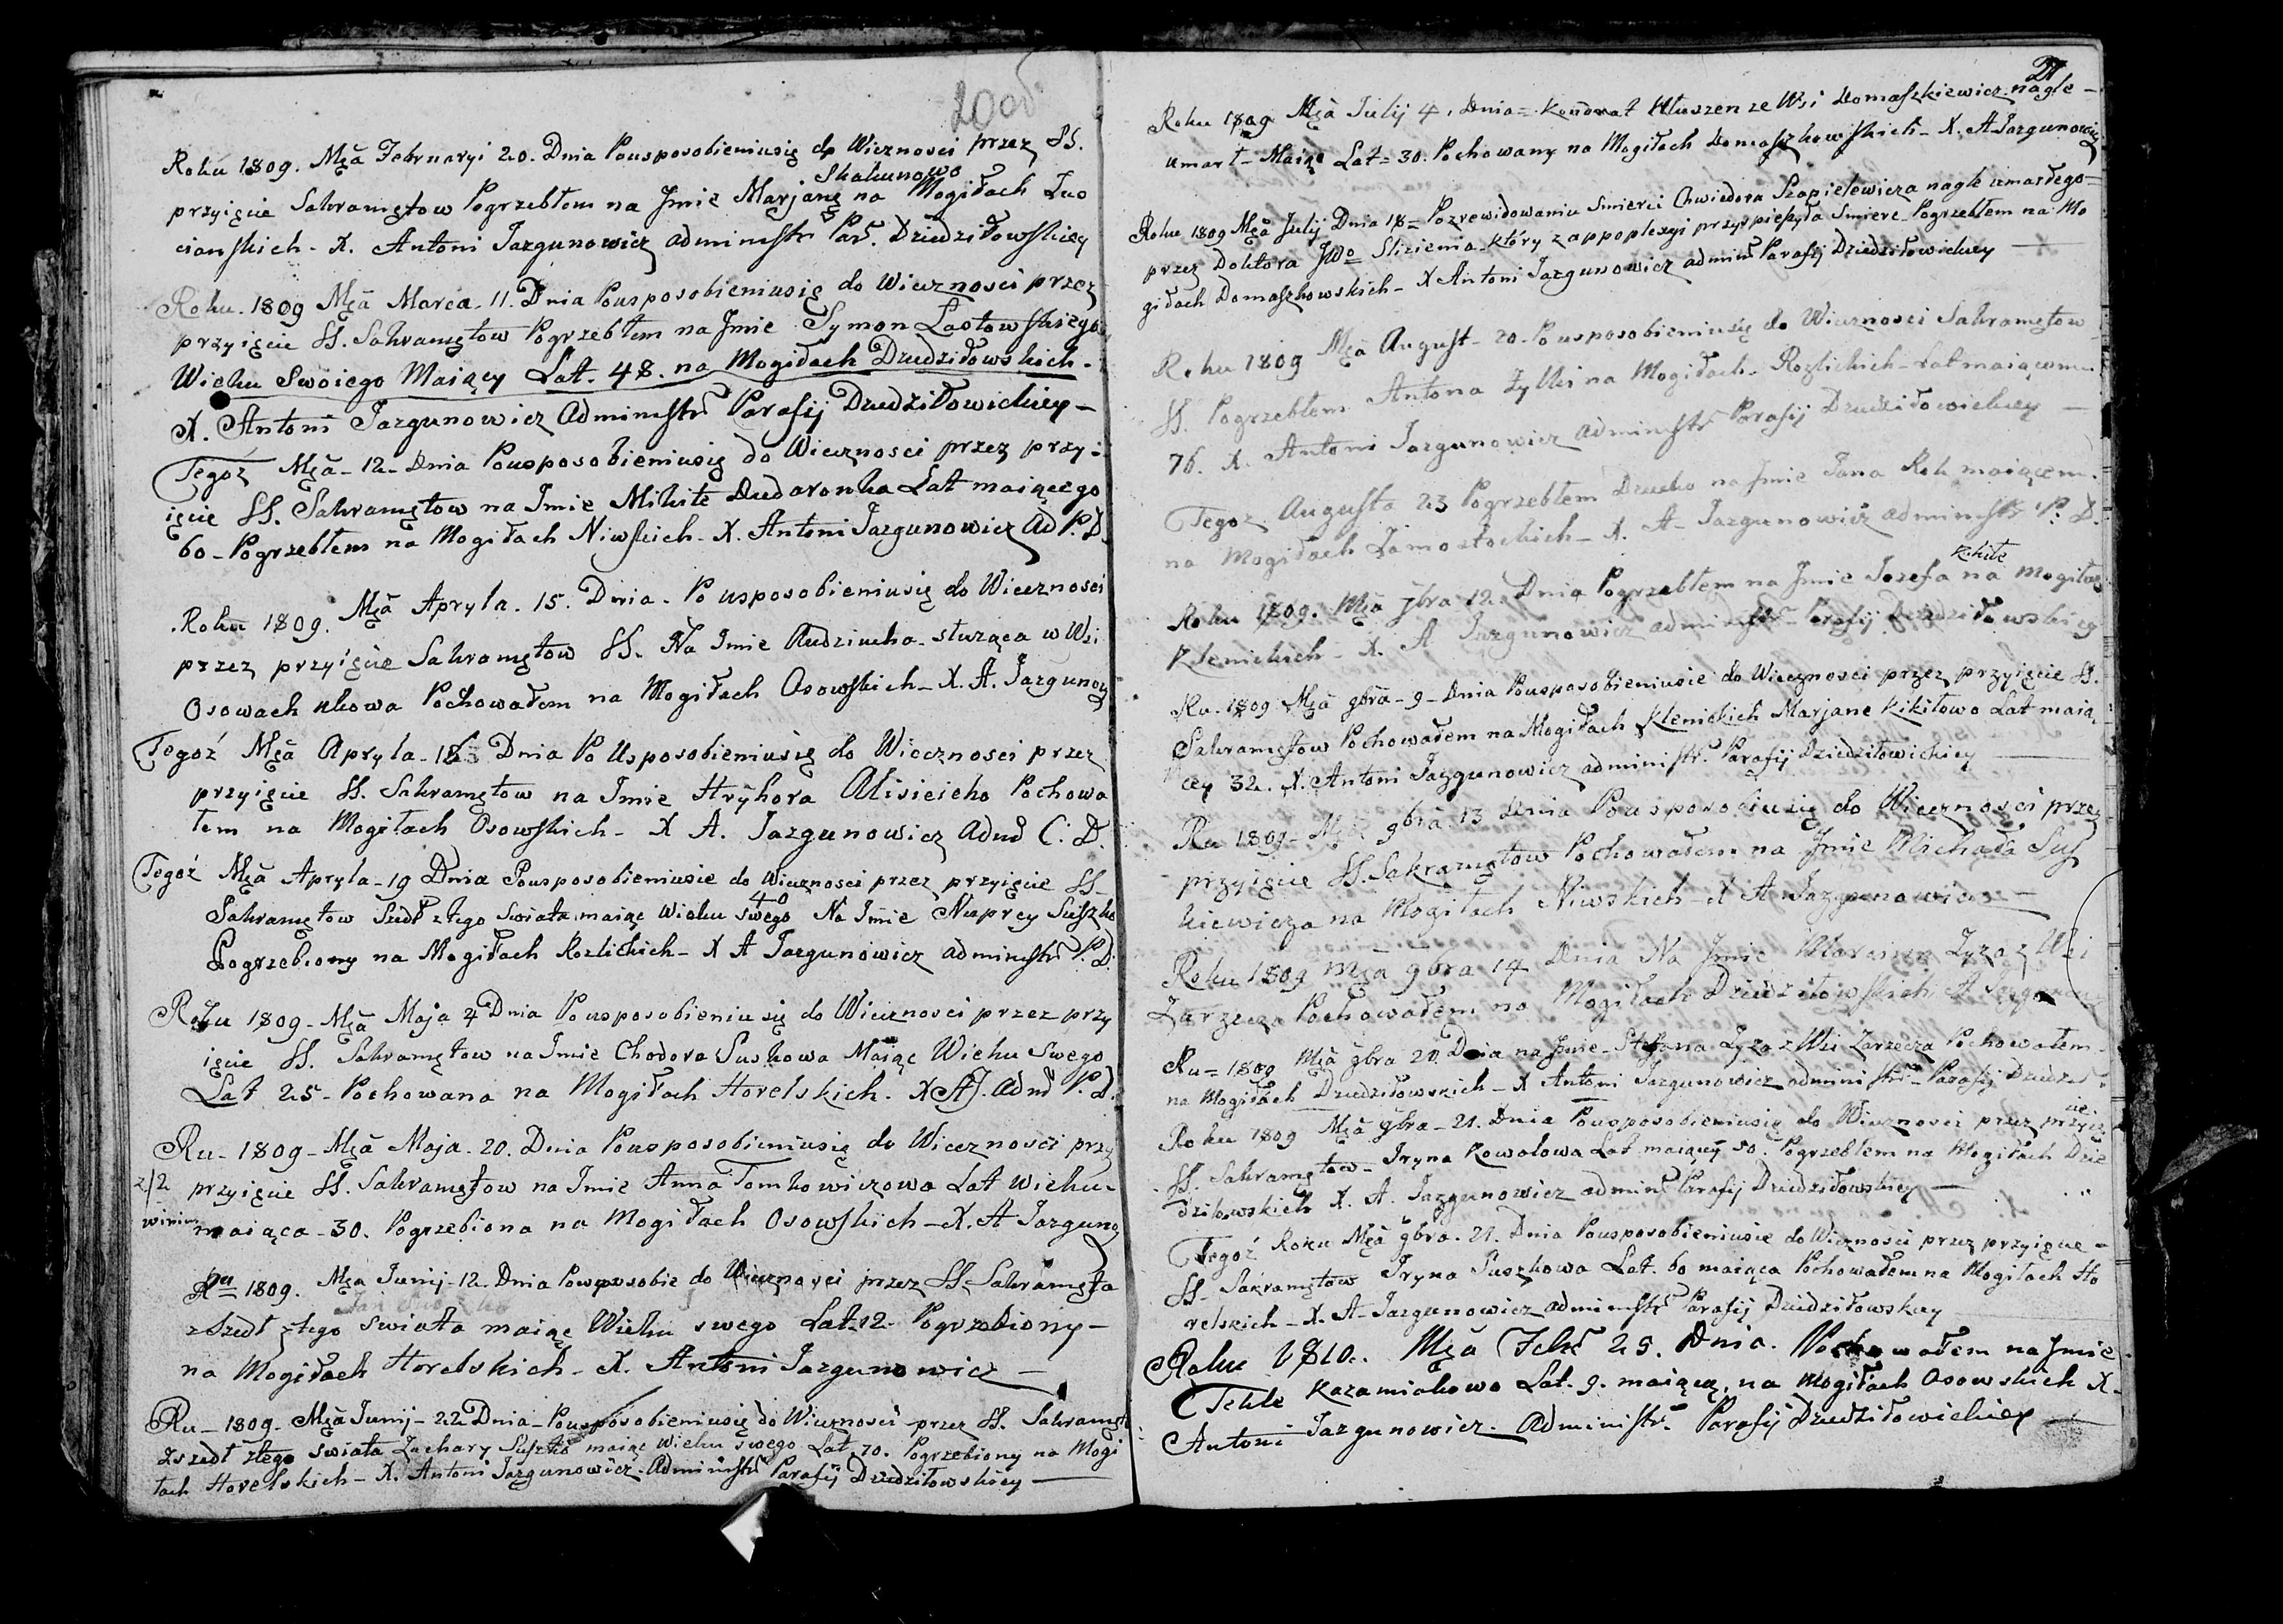 20 об.
Roku 1809. Mca Februaryi 20. Dnia Pousposobieniusię do Wicznosci przez SS.
Skakunowo
przyięcie Sakramętow Pogrzebłem na Jmie Marjanę na Mogiłach Luo
cianskich - X. Antoni Jazgunowicz administr Par. Dziedziłowskiey
Roku. 1809 Mca Marca. 11. Dnia Pousposobieniusię do Wicznosci przez
przyięcie SS. Sakramętow Pogrzebłem na Jmie Symon Lastowskiego
Wieku Swoiego Maiący Lat. 48. na Mogiłach Dziedziłowskich.
X. Antoni Jazgunowicz Administr Parafij Dziedziłowickiey -
Tegoż Mca - 12 - Dnia Pousposobieniusię do Wicznosci przez przy-
ięcie SS. Sakramętow na Jmie Mikite Dudaronka Lat maiącego
60 - Pogrzebłem na Mogiłach Niwskich - X. Antoni Jazgunowicz Ad P. D.
Roku 1809. Mca Apryla. 15. Dnia. Po usposobieniusię do Wicznosci
przez przyięcie Sakramętow SS. Na Jmie Audziucha służąca w Wsi
Osowach Pochowałem na Mogiłach Osowskich - X. A. Jazgunow
Tegoż Mca Apryla - Dnia Po Usposobieniusię do Wiecznosci przez
przyięcie SS. Sakramętow na Jmie Hryhora Alisieicho Pochowa
łem na Mogiłach Osowskich - X A. Jazgunowicz Admł C: D.
Tegoż Mca Apryla - 19 Dnia Pousposobieniusie do Wicznosci przez przyięcie SS -
40
Sakramętow Szedł ztego Swiata maiąc Wieku Swego Na Jmie Nuprey Suszko
Pogrzebiony na Mogiłach Rozlickich - X A Jazgunowicz administr P. D.
Roku 1809 - Mca Maja 4 Dnia Pousposobieniu się do Wicznosci przez przy
ięcie SS. Sakramętow na Jmie Chodora Suskowa Maiąc Wieku Swego
Lat 25 - Pochowana na Mogiłach Horelskich. X A J. Adm P. D.
Ru - 1809 - Mca Maja. 20. Dnia Pousposobieniusię do Wicznosci prz
przyięcie SS. Sakramętow na Jmie Anna Tomkowiczowa Lat wieku -
maiąca - 30. Pogrzebiona na Mogiłach Osowskich - X. A Jazguno
Ru 1809. Mca Junij - 12. Dnia Powposobie do Wicznosci przez SS - Sakramęta
Jan Suszko
zszedł ztego Swiata maiąc Wieku swego Lat. 12 - Pogrzebiony -
na Mogiłach Horelskich - X. Antoni Jazgunowicz -
Ru - 1809 - Mca Junij - 22 Dnia - Pousposobieniusię do Wicznosci - przez SS. Sakramęt
Zszedł ztego Swiata Zachary Suszko maiąc wieku swego Lat. 70. Pogrzebiony na Mogi
łach Horelskich - X. Antoni Jazgunowicz. Administr Parafij Dziedziłowskiey -
21
Roku 1809 Mca Julij 4, Dnia = Kondrat Hłuszen ze Wsi Domaszkiewicz nagle -
umarł - Maiąc Lat = 30. Pochowany na Mogiłach Domaszkowskich - X. A Jazgunowicz
Roku 1809 Mca Julij Dnia 18 = Pozrewidowaniu Smierci Chwiedora Szapielewicza nagle umarłego -
przez Doktora JWo Slizienia który z appoplexyi przyspieszyła Smierc Pogrzebłem na Mo
giłach Domaszkowskich - X Antoni Jazgunowicz admin Parafij Dziedziłowickiey
Roku 1809 Mca August - 20 - Pousposobieniusię do Wicznosci Sakramętow
SS. Pogrzebłem Antona Zylki na Mogiłach - Rozlickich - Lat maiącemu
76. X. Antoni Jazgunowicz administr Parafij Dziedziłowickiey -
Tegoz Augusta 23 Pogrzebłem Dziecko na Jmie Jana Rok maiącem.
na Mogiłach Zamostockich - X. A - Jazgunowicz administr P. D.
Kikiłe
Roku 1809. Mca 12. Dnia Pogrzebłem na Jmie Jozefa na Mogiłach
Klenickich - X. A Jazgunowicz administr - Parafij Dziedziłowskiey
Ru. 1809 Mca 9bra - 9 - Dnia Pousposobieniusie do Wiecznosci przez przyięcie SS.
Sakramętow Pochowałem na Mogiłach Klenickich Marjane Kikiłowo Lat maią
cey 32. X. Antoni Jazgunowicz administr. Parafij Dziedziłowickiey
Ru 1809 - Mca 9bra 13 Dnia Pousposobiusię do Wiecznosci przez
przyięcie SS. Sakramętow Pochowałem na Jmie Michała Sus
kiewicza na Mogiłach Niwskich - X A Jazgunowicz -
Roku 1809 Mca 9bra 14 Dnia Na Jmie Zyzo z Wsi
Zarzecza Pochowałem na Mogiłach Dziedziłowskich A Jazgunow
Ru = 1809 Mca 9bra 20. Dnia na Jmie - Stefana Zyzo z Wsi Zarzecza Pochowałem -
na Mogiłach Dziedziłowskich - X Antoni Jazgunowicz administr - Parafij Dziedził
Roku 1809 Mca 9bra - 21. Dnia Pousposobieniusię do Wicznosci przez przyięcie
SS. Sakramętow - Jryna Kowolowa Lat maiący 50. Pogrzebłem na Mogiłach Dzie
dziłowskich X. A. Jazgunowicz admin Parafij Dziedziłowskiey -
Tegoż Roku Mca 9bra. 21. Dnia Pousposobieniusie do Wicznosci przez przyięcie -
SS - Sakramętow Jryna Suszkowa Lat. 60 maiąca Pochowałem na Mogiłach Ho
relskich - X. A - Jazgunowicz administr Parafij Dziedziłowskiey
Roku 1810. Mca Febr 25. Dnia. Pochowałem na Jmie
Tekle Kazamiakowo Lat. 9. maiącą, na Mogiłach Osowskich X -
Antoni Jazgunowicz. Administr. Parafij Dziedziłowickiey